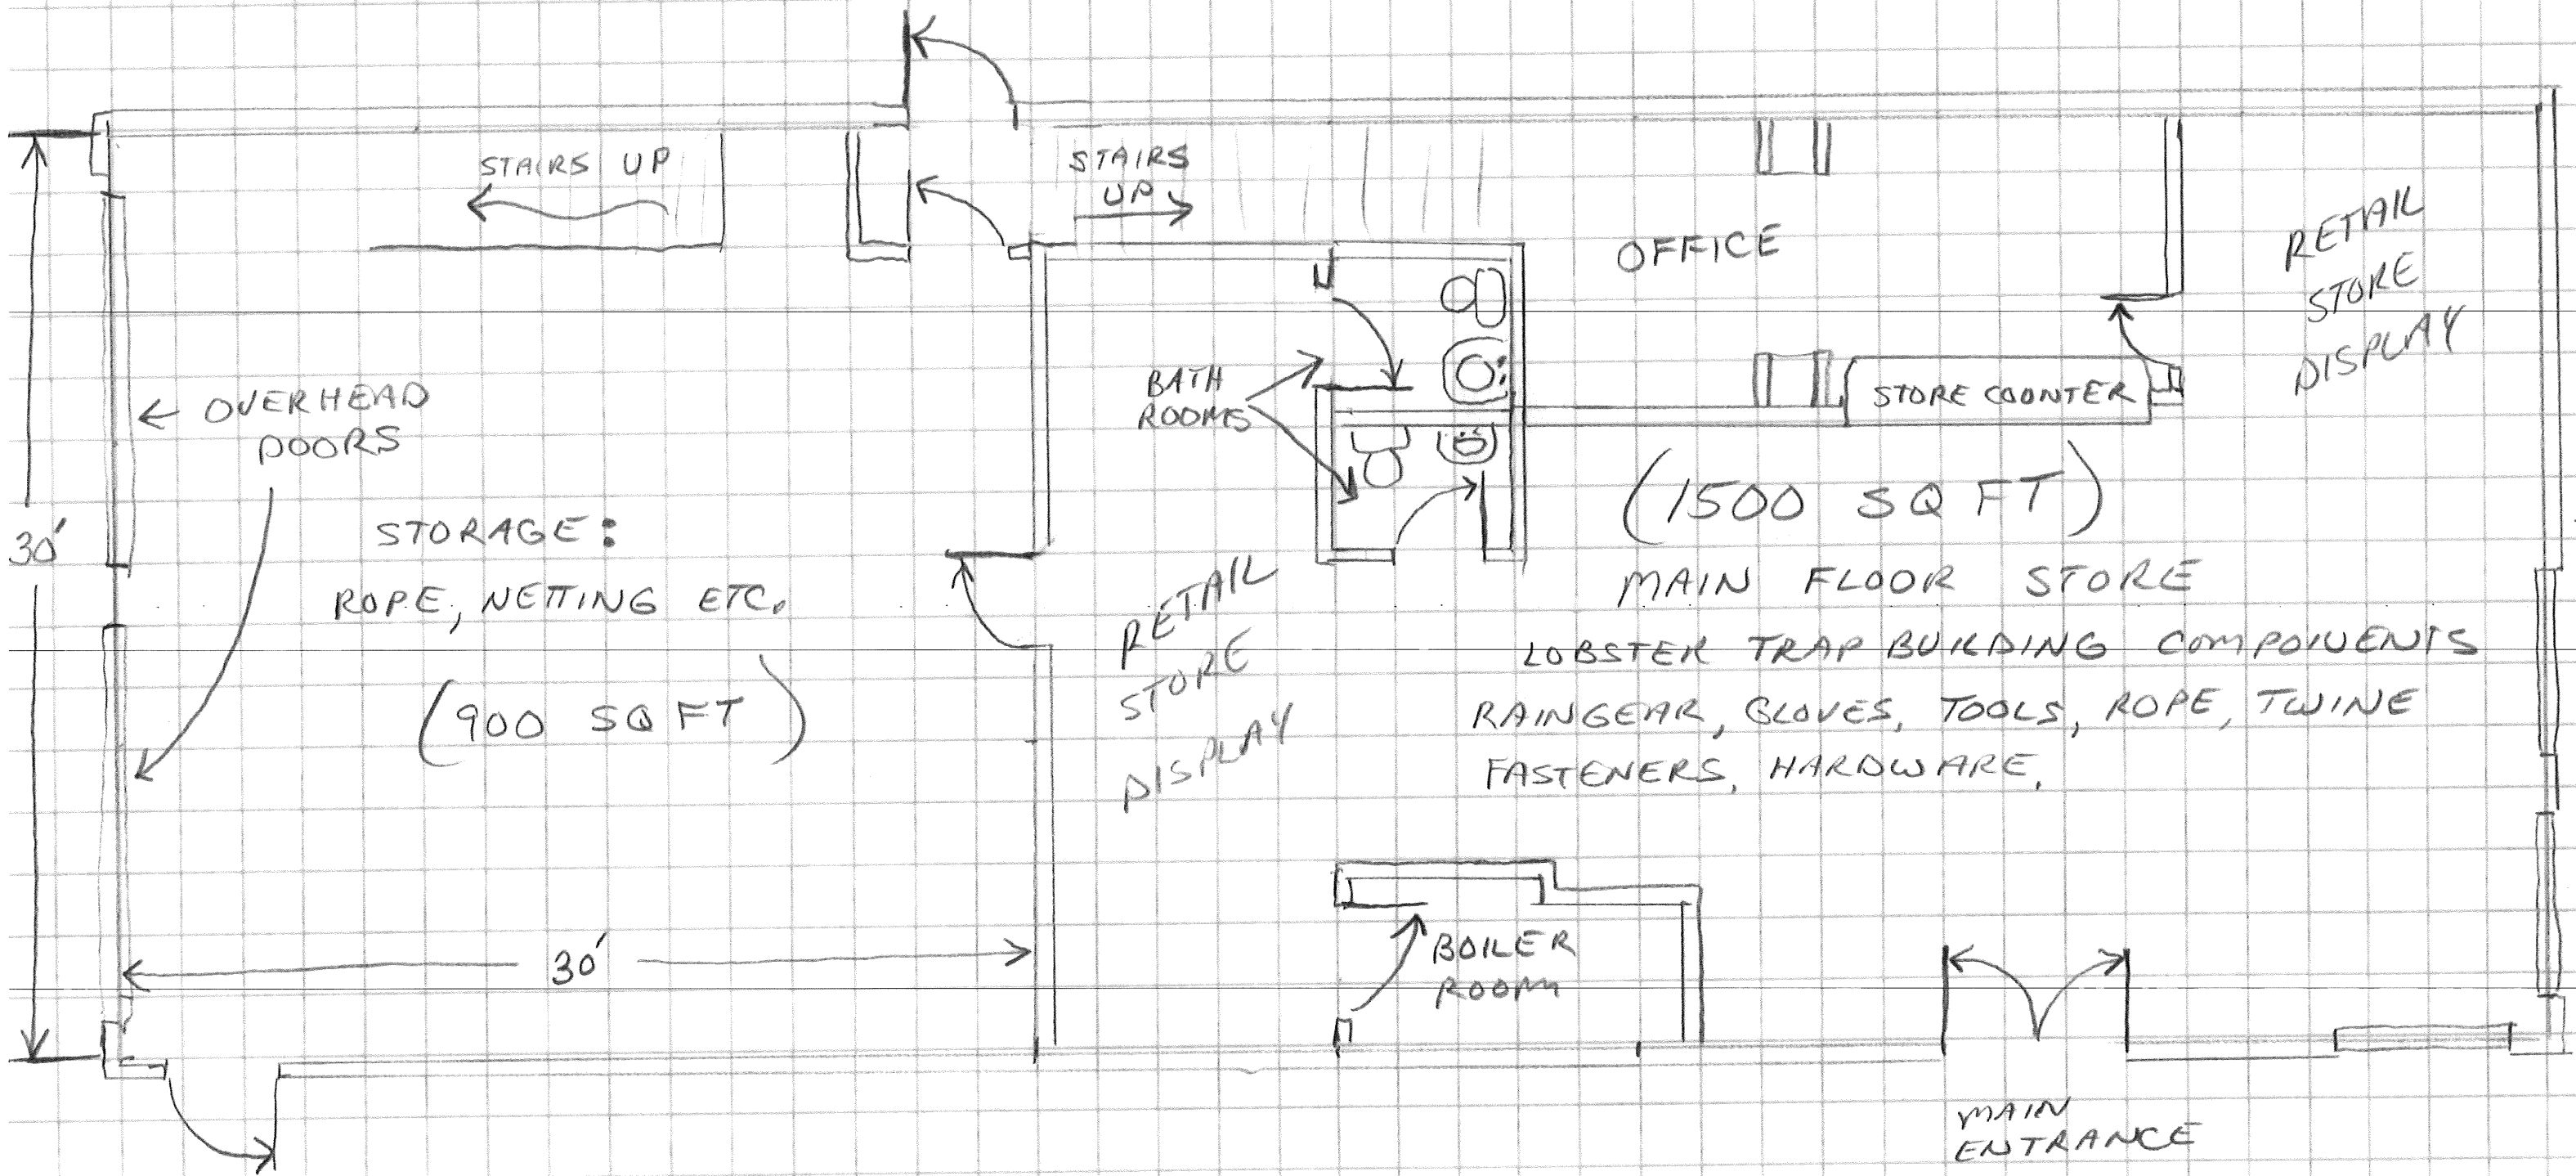 STAIRS UP
STAIRS
UP
OFFICE
RETAIL
STORE
DISPLAY
← OVERHEAD
DOORS
BATH
ROOMS
STORE COUNTER
30'
STORAGE:
ROPE, NETTING ETC.
(900 SQ FT)
RETAIL
STORE
DISPLAY
(1500 SQ FT)
MAIN FLOOR STORE
LOBSTER TRAP BUILDING COMPONENTS
RAINGEAR, GLOVES, TOOLS, ROPE, TWINE
FASTENERS, HARDWARE,
30'
BOILER
ROOM
MAIN
ENTRANCE